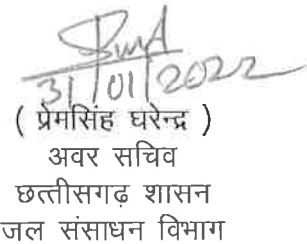 31/01/2022
( प्रेमसिंह घरेन्द्र )
अवर सचिव
छत्तीसगढ़ शासन
जल संसाधन विभाग